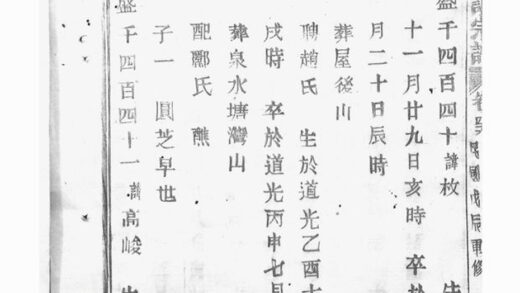 宗譜 卷 民國戊辰重修
盛千四百四十 諱枚
十一月廿九日亥時 卒於
月二十日辰時
葬屋後山
聘趙氏 生於道光乙酉十
戌時 卒於道光丙申七月
葬泉水塘灣山
配酈氏 醮
子一 圓芝早世
盛千四百四十一 諱高峻